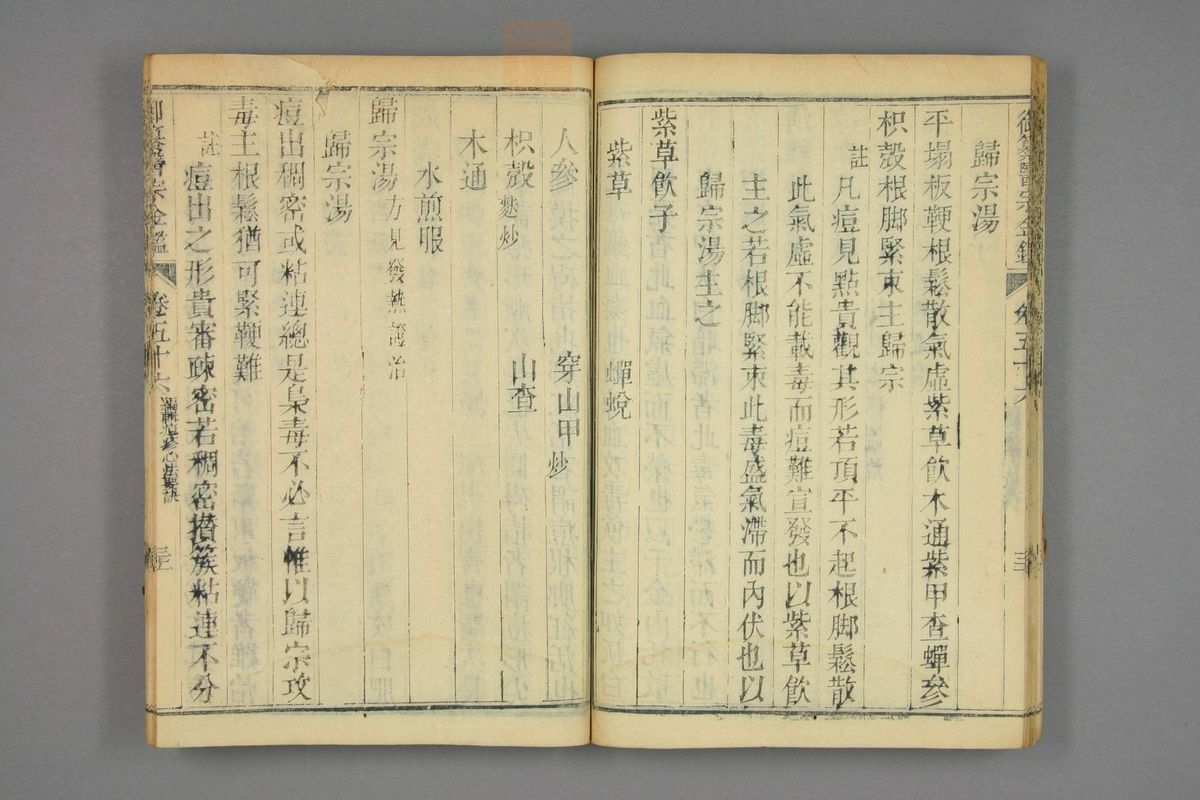 歸宗湯
平塌板鞕根鬆散氣虛紫草飲木通紫甲查蟬參
枳殼根脚緊束主歸宗
註凡痘見點貴觀其形若頂平不起根脚鬆散
此氣虛不能載毒而痘難宣發也以紫草飲
主之若根脚緊束此毒盛氣滯而內伏也以
歸宗湯主之
紫草飲子
紫草 蟬蛻
人參 穿山甲炒
枳殼麩炒 山查
木通
水煎服
歸宗湯方見發熱證治
歸宗湯
痘出稠密或粘連總是梟毒不必言惟以歸宗攻
毒主根鬆猶可緊鞕難
註痘出之形貴審疎密若稠密攢簇粘連不分
御纂醫宗金鑑 卷五十六 編輯痘疹心法要訣